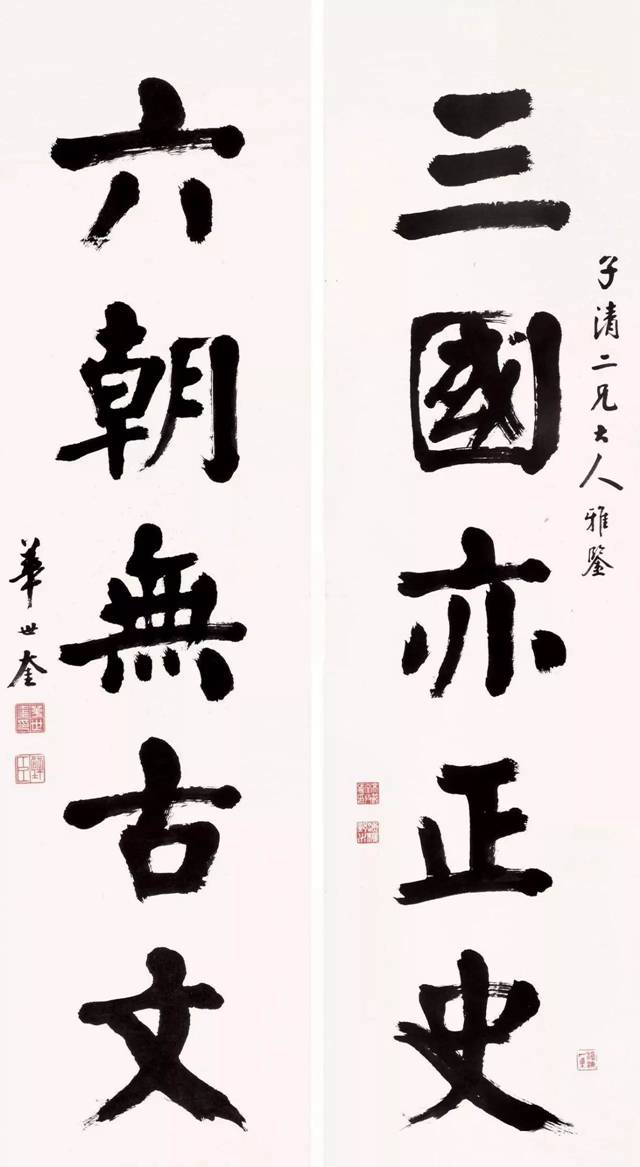 子清二兄大人雅鑒
三國亦正史
六朝無古文
華世奎